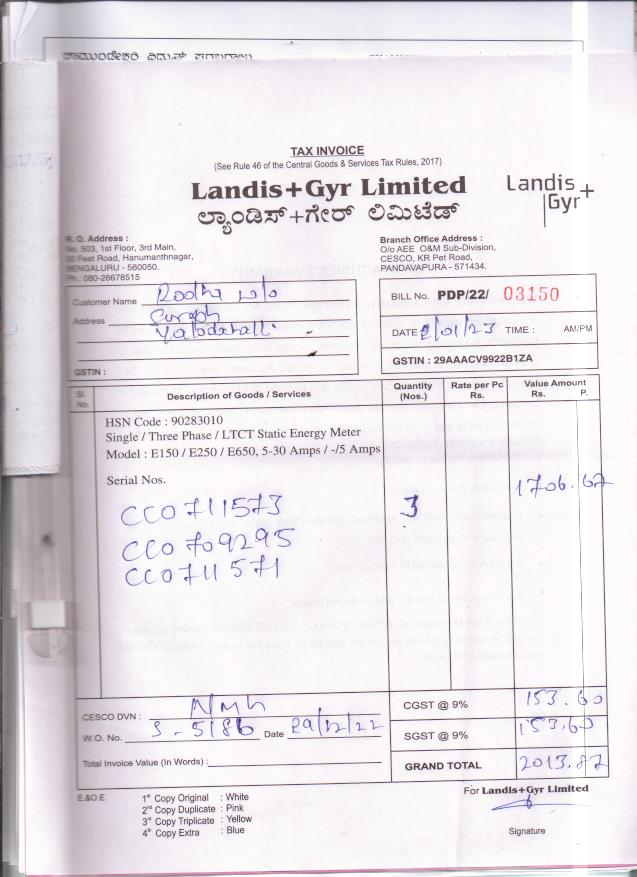 TAX INVOICE
(See Rule 46 of the Central Goods & Services Tax Rules, 2017)
Landis+Gyr Limited
ಲ್ಯಾಂಡಿಸ್+ಗೇರ್ ಲಿಮಿಟೆಡ್
Landis
Gyr+
R. O. Address :
No. 503, 1st Floor, 3rd Main,
Feet Road, Hanumanthnagar,
BENGALURU - 560050.
Ph.: 080-26678515
Branch Office Address :
O/o AEE O&M Sub-Division,
CESCO, KR Pet Road,
PANDAVAPURA - 571434.
Customer Name Radha w/o
Address
GSTIN :
BILL No. PDP/22/ 03150
DATE /01/23 TIME : AM/PM
GSTIN : 29AAACV9922B1ZA
Sl. No. Description of Goods / Services Quantity (Nos.) Rate per Pc Rs. Value Amount Rs. P.
HSN Code : 90283010
Single / Three Phase / LTCT Static Energy Meter
Model : E150 / E250 / E650, 5-30 Amps / -/5 Amps
Serial Nos.
CC0711573 3 1706.67
CC0709295
CC0711571
CESCO DVN :
W.O. No. S-5186 Date 29/12/22
Total Invoice Value (In Words) :
CGST @ 9% 153.60
SGST @ 9% 153.60
GRAND TOTAL 2013.87
E.&O.E.
1st Copy Original : White
2nd Copy Duplicate : Pink
3rd Copy Triplicate : Yellow
4th Copy Extra : Blue
For Landis+Gyr Limited
Signature